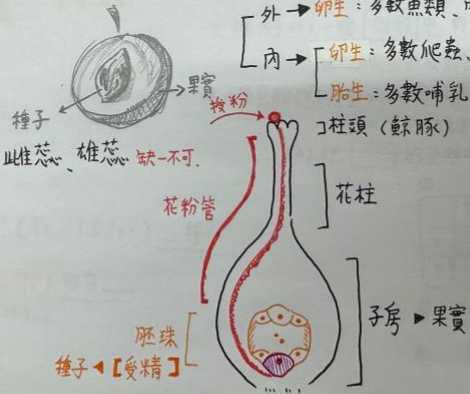 外→卵生：多數魚類、
內→卵生：多數爬蟲、
胎生：多數哺乳
果實
種子
雌蕊、雄蕊 缺一不可.
授粉
柱頭（鯨豚）
花粉管
花柱
子房▶果實
胚珠
種子◀【受精】